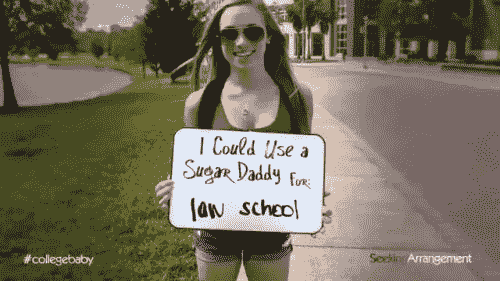 I Could Use a
Sugar Daddy For:
law school
#collegebaby
Seeking Arrangement